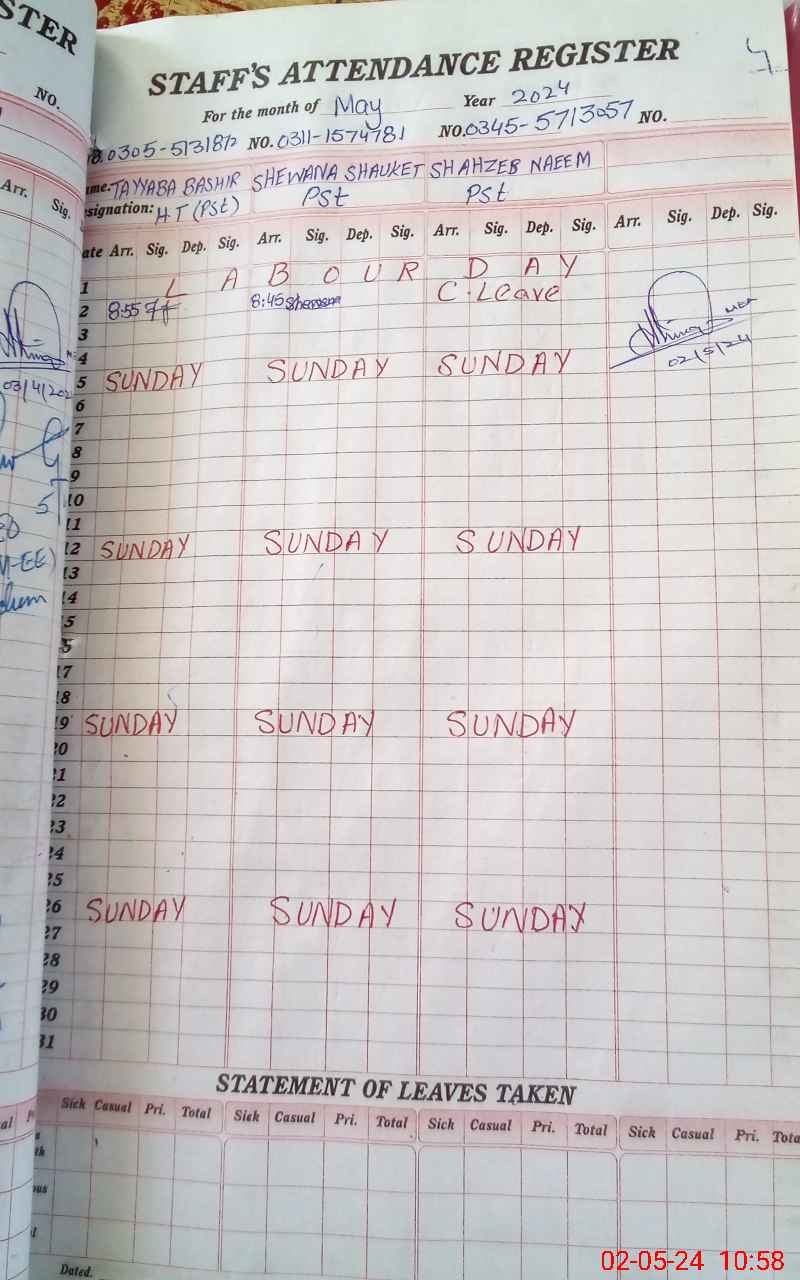 STER
NO.
Arr.
Sig.
03/4/202
STAFF'S ATTENDANCE REGISTER
For the month of May Year 2024
0305-5131872 NO. 0311-1574781 NO. 0345-5713057 NO.
me: TAYYABA BASHIR SHEWANA SHAUKET SHAHZEB NAEEM
signation: H T (PSt) PSt PSt
ate Arr. Sig. Dep. Sig. Arr. Sig. Dep. Sig. Arr. Sig. Dep. Sig. Arr. Sig. Dep. Sig.
1 L A B O U R D A Y
2 8:55 8:45 C. Leave
3
4 02/5/24
5 SUNDAY SUNDAY SUNDAY
6
7
8
9
10
11
12 SUNDAY SUNDAY SUNDAY
13
14
15
16
17
18
19 SUNDAY SUNDAY SUNDAY
20
21
22
23
24
25
26 SUNDAY SUNDAY SUNDAY
27
28
29
30
31
STATEMENT OF LEAVES TAKEN
Sick Casual Pri. Total Sick Casual Pri. Total Sick Casual Pri. Total Sick Casual Pri. Tota
Dated.
02-05-24 10:58